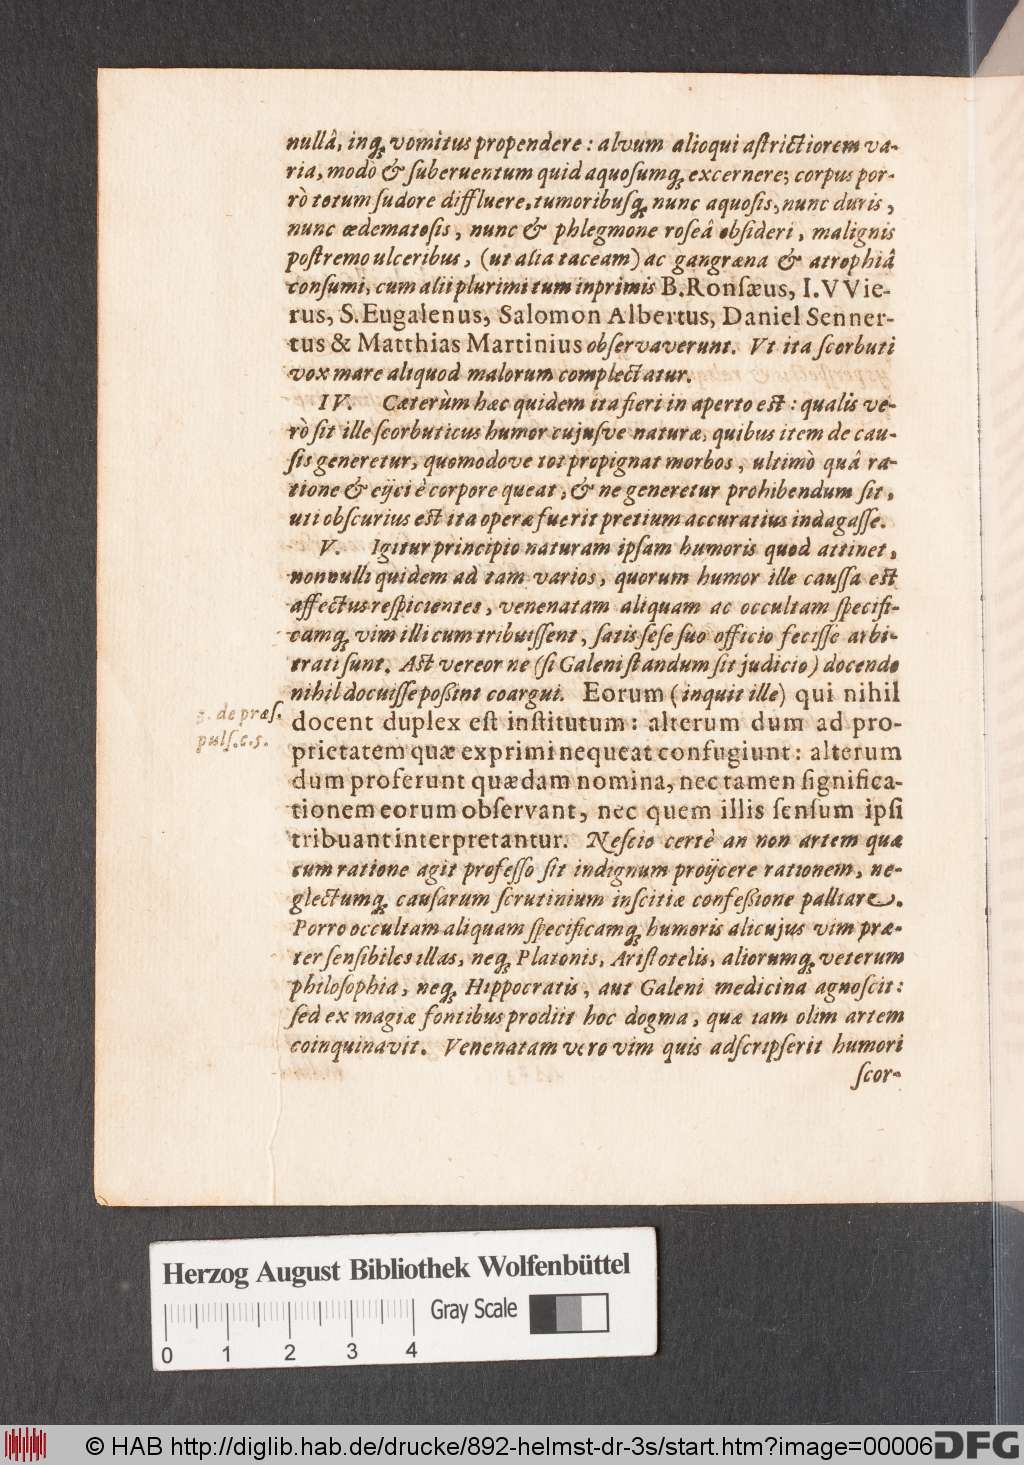 nullâ, inq́; vomitus propendere: alvum alioqui aſtrictiorem va-
ria, modò & ſuberuentum quid aquoſumq́; excernere; corpus por-
rò totum ſudore diffluere, tumoribuſq́; nunc aquoſis, nunc duris,
nunc œdematoſis, nunc & phlegmone roſeâ obſideri, malignis
poſtremo ulceribus, (ut alia taceam) ac gangræna & atrophiâ
conſumi, cum alii plurimi tum inprimis B. Ronſæus, I. VVie-
rus, S. Eugalenus, Salomon Albertus, Daniel Sennert-
tus & Matthias Martinius obſervaverunt. Vt ita ſcorbuti
vox mare aliquod malorum complectatur.
IV. Cæterùm hæc quidem ita fieri in aperto eſt: qualis ve-
rò ſit ille ſcorbuticus humor cujuſve naturæ, quibus item de cau-
ſis generetur, quomodove tot propignat morbos, ultimò quâ ra-
tione & eijci è corpore queat, & ne generetur prohibendum ſit,
uti obſcurius eſt ita operæ fuerit pretium accuratius indagaſſe.
V. Igitur principio naturam ipſam humoris quod attinet,
nonnulli quidem ad tam varios, quorum humor ille cauſſa eſt
affectus reſpicientes, venenatam aliquam ac occultam ſpecifi-
camq́; vim illi cum tribuiſſent, ſatis ſeſe ſuo officio feciſſe arbi-
trati ſunt. Aſt vereor ne (ſi Galeni ſtandum ſit judicio) docendo
nihil docuiſſe poßint coargui. Eorum (inquit ille) qui nihil
g. de præſ.
pulſ. c. 5.
docent duplex eſt inſtitutum: alterum dum ad pro-
prietatem quæ exprimi nequeat confugiunt: alterum
dum proferunt quædam nomina, nec tamen ſignifica-
tionem eorum obſervant, nec quem illis ſenſum ipſi
tribuant interpretantur. Neſcio certè an non artem quæ
cum ratione agit profeſſo ſit indignum proijcere rationem, ne-
glectumq́; cauſarum ſcrutinium inſcitiæ confeßione palliare.
Porro occultam aliquam ſpecificamq́; humoris alicujus vim præ-
ter ſenſibiles illas, neq́; Platonis, Ariſtotelis, aliorumq́; veterum
philoſophia, neq́; Hippocratis, aut Galeni medicina agnoſcit:
ſed ex magiæ fontibus prodiit hoc dogma, quæ tam olim artem
coinquinavit. Venenatam vero vim quis adſcripſerit humori
ſcor-
Herzog August Bibliothek Wolfenbüttel
Gray Scale
0 1 2 3 4
© HAB http://diglib.hab.de/drucke/892-helmst-dr-3s/start.htm?image=00006
DFG